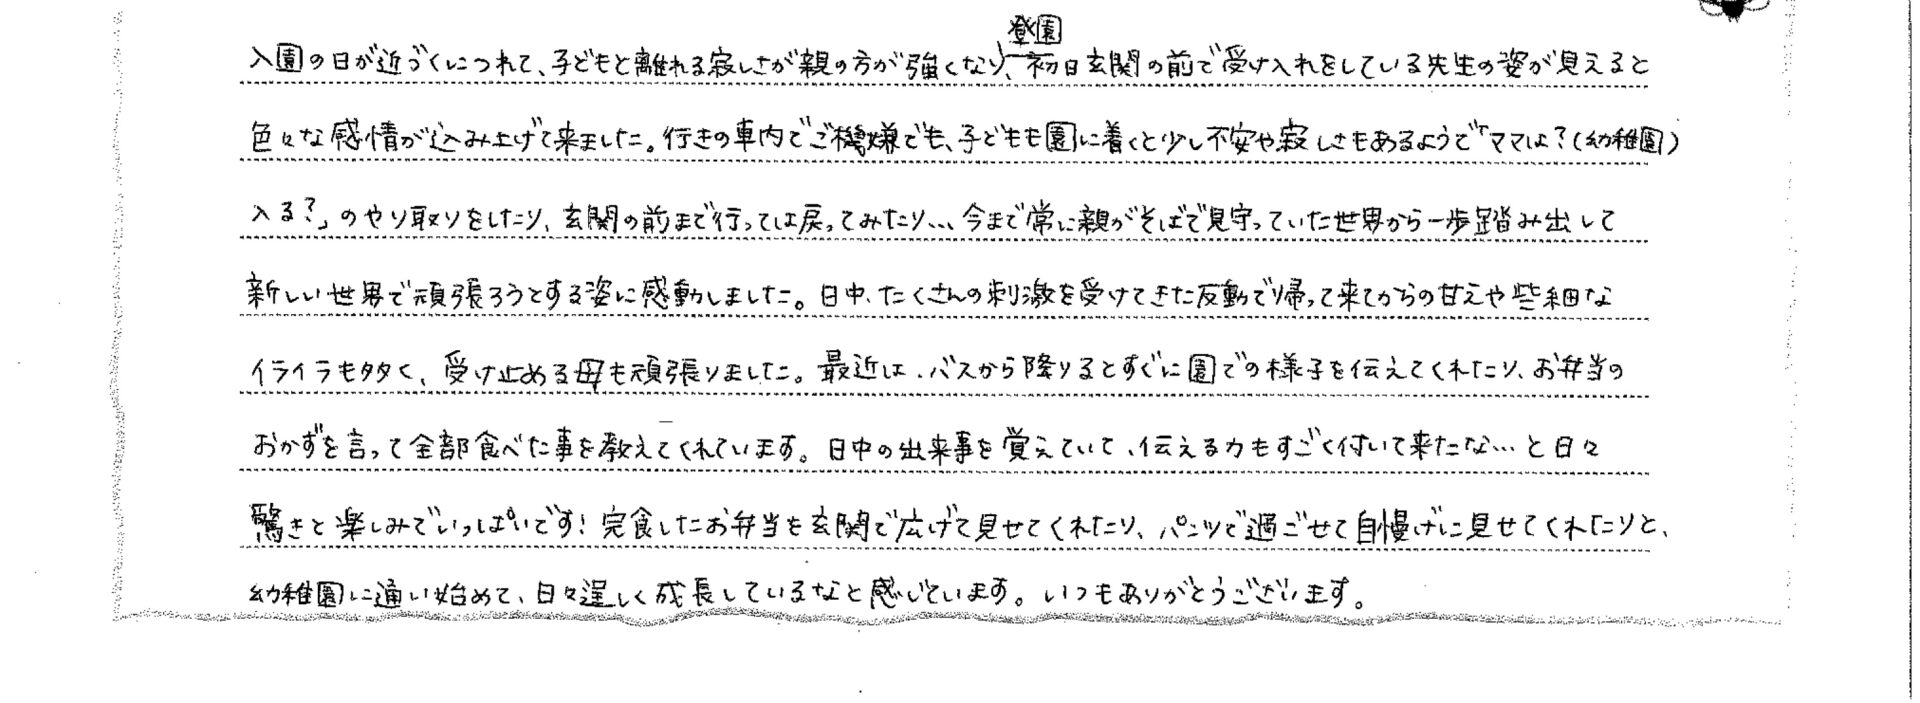 入園の日が近づくにつれて、子どもと離れる寂しさが親の方が強くなり、登園初日玄関の前で受け入れをしている先生の姿が見えると
色々な感情が込み上げて来ました。行きの車内でご機嫌でも、子どもも園に着くと少し不安や寂しさもあるようで「ママは？(幼稚園)
入る？」のやり取りをしたり、玄関の前まで行っては戻ってみたり…、今まで常に親がそばで見守っていた世界から一歩踏み出して
新しい世界で頑張ろうとする姿に感動しました。日中、たくさんの刺激を受けてきた反動で帰って来てからの甘えや些細な
イライラも多く、受け止める母も頑張りました。最近は、バスから降りるとすぐに園での様子を伝えてくれたり、お弁当の
おかずを言って全部食べた事を教えてくれています。日中の出来事を覚えていて、伝える力もすごく付いて来たな…と日々
驚きと楽しみでいっぱいです！完食したお弁当を玄関で広げて見せてくれたり、パンツで過ごせて自慢げに見せてくれたりと、
幼稚園に通い始めて、日々逞しく成長しているなと感じています。いつもありがとうございます。